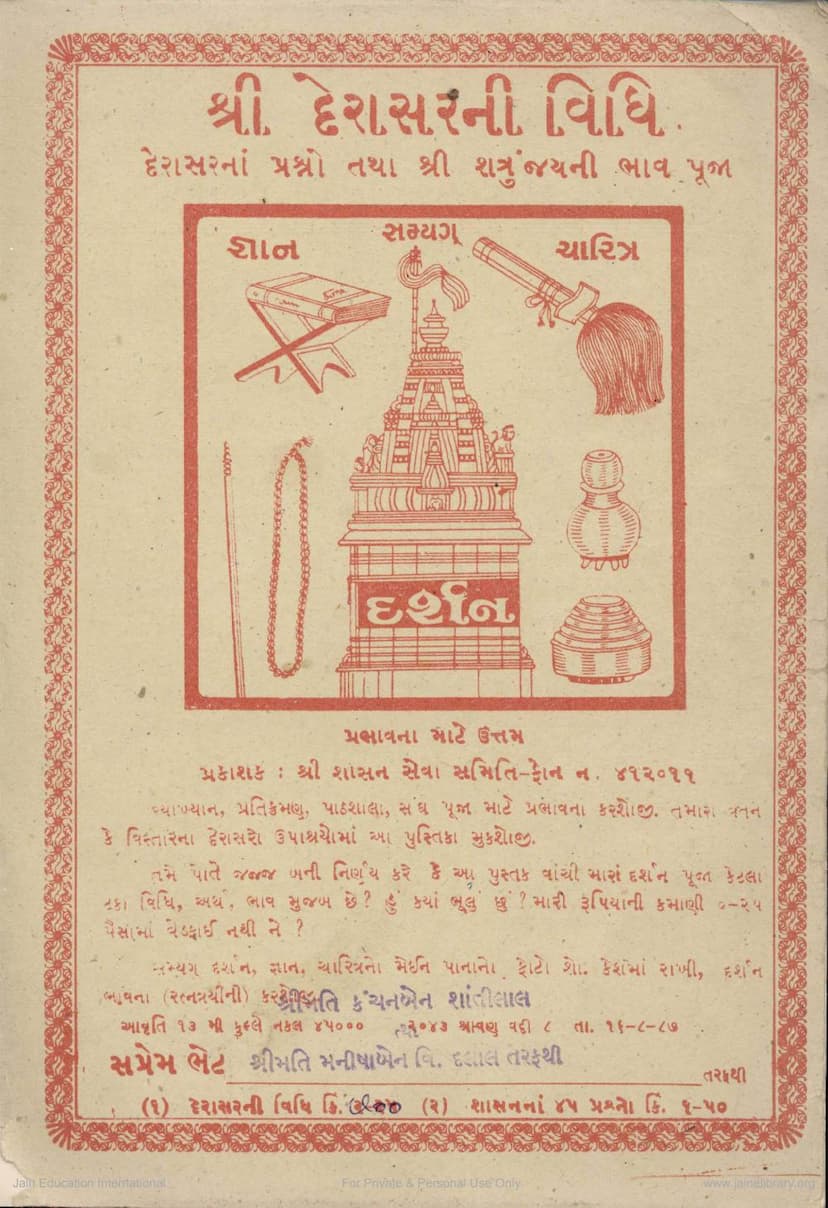 શ્રી દેરાસરની વિધિ
દેરાસરનાં પ્રશ્નો તથા શ્રી શત્રુંજયની ભાવ પૂજા
સમ્યગ્
જ્ઞાન
ચારિત્ર
દર્શન
પ્રભાવના માટે ઉત્તમ
પ્રકાશક : શ્રી શાસન સેવા સમિતિ-ફોન નં. ૪૧૨૦૧૧
વ્યાખ્યાન, પ્રતિક્રમણ, પાઠશાલા, સંઘ પૂજા માટે પ્રભાવના કરશોજી. તમારા વતન
કે વિસ્તારના દેરાસરો ઉપાશ્રયોમાં આ પુસ્તિકા મુકશોજી.
તમે પોતે જજ બની નિર્ણય કરો કે આ પુસ્તક વાંચી મારાં દર્શન પૂજા કેટલા
ટકા વિધિ, અર્થ, ભાવ મુજબ છે? હું ક્યાં ભૂલું છું? મારી રૂપિયાની કમાણી ૦-૨૫
પૈસામાં વેડફાઈ નથી ને ?
સમ્યગ્ દર્શન, જ્ઞાન, ચારિત્રનો મેઈન પાનાનો ફોટો શો. કેશમાં રાખી, દર્શન
ભાવના (રત્નત્રયીની)
શ્રીમતિ કંચનબેન શાંતીલાલ
આવૃતિ ૧૩ મી કુલ્લે નકલ ૪૫૦૦૦ ૨૦૪૩ શ્રાવણ વદી ૮ તા. ૧૬-૮-૮૭
સપ્રેમ ભેટ શ્રીમતિ મનીષાબેન વિ. દલાલ તરફથી
તરફથી
(૧) દેરાસરની વિધિ કિં. (૨) શાસનનાં ૪૫ પ્રશ્નો કિં. ૧-૫૦
Jain Education International
For Private & Personal Use Only
www.jainelibrary.org